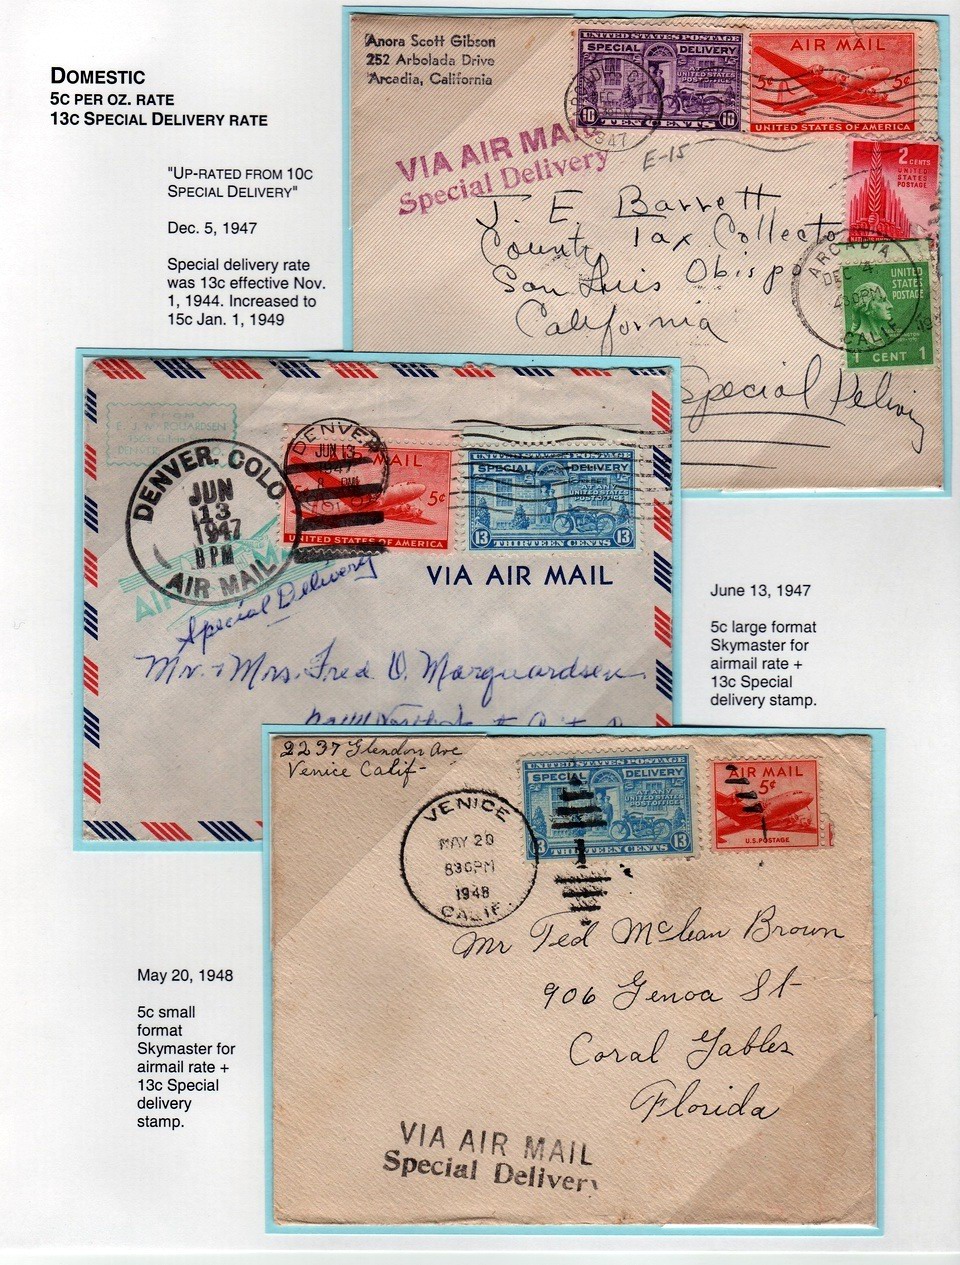 DOMESTIC
5C PER OZ. RATE
13C SPECIAL DELIVERY RATE
"UP-RATED FROM 10C
SPECIAL DELIVERY"
Dec. 5, 1947
Special delivery rate
was 13c effective Nov.
1, 1944. Increased to
15c Jan. 1, 1949
Anora Scott Gibson
252 Arbolada Drive
Arcadia, California
UNITED STATES POSTAGE
SPECIAL DELIVERY
AT ANY
UNITED STATES
POST OFFICE
10 10
TEN CENTS
AIR MAIL
5¢ 5¢
UNITED STATES OF AMERICA
1947
VIA AIR MAIL
Special Delivery
E-15
2 CENTS
UNITED
STATES
POSTAGE
J. E. Barrett
County Tax Collector
San Luis Obispo
California
Special Delivery
ARCADIA
DEC 4
4 30 PM
CALIF.
UNITED
STATES
POSTAGE
1 CENT 1
DENVER, COLO
JUN
13
1947
8 PM
AIR MAIL
DENVER
JUN 13
1947
MAIL
5¢
UNITED STATES OF AMERICA
UNITED STATES POSTAGE
SPECIAL DELIVERY
AT ANY
UNITED STATES
POST OFFICE
13 13
THIRTEEN CENTS
AIR
VIA AIR MAIL
Special Delivery
Mr. & Mrs. Fred O. Marquardsen
June 13, 1947
5c large format
Skymaster for
airmail rate +
13c Special
delivery stamp.
2237 Glendon Ave
Venice Calif-
VENICE
MAY 20
830PM
1948
CALIF.
UNITED STATES POSTAGE
SPECIAL DELIVERY
AT ANY
UNITED STATES
POST OFFICE
13 13
THIRTEEN CENTS
AIR MAIL
5¢
U.S. POSTAGE
Mr Ted McLean Brown
906 Genoa St
Coral Gables
Florida
VIA AIR MAIL
Special Delivery
May 20, 1948
5c small
format
Skymaster for
airmail rate +
13c Special
delivery
stamp.